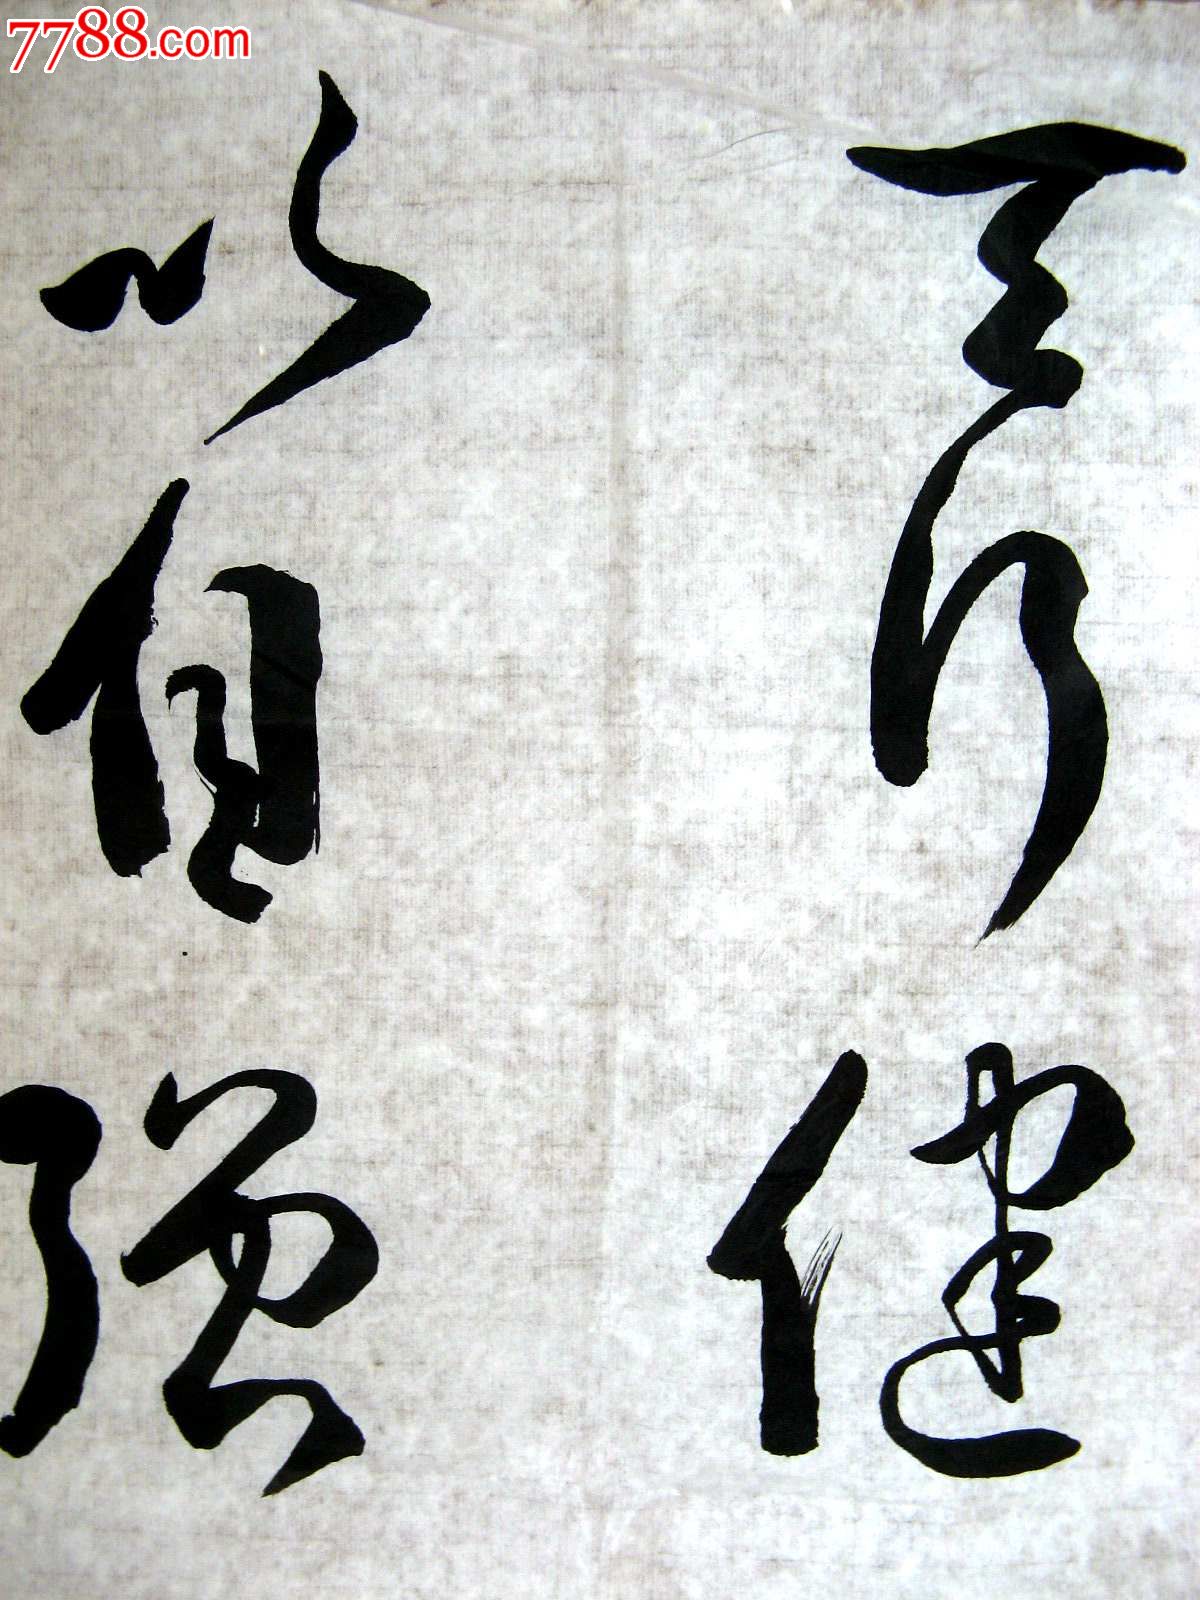 7788.com
天行健
以自强